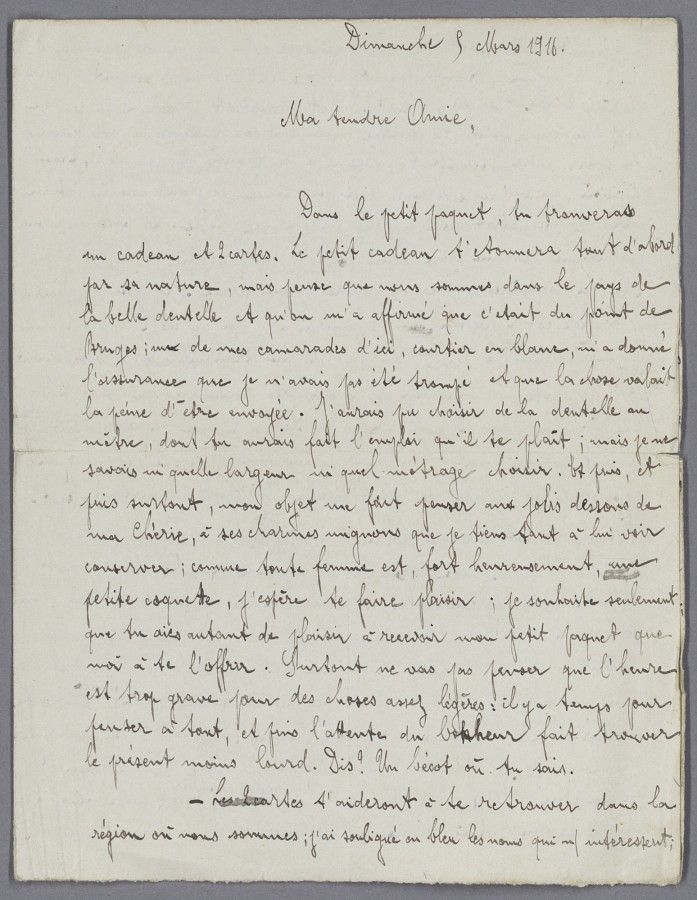 Dimanche 5 Mars 1916.
Ma tendre Amie,
Dans le petit paquet, tu trouveras
un cadeau et 2 cartes. Le petit cadeau t'etonnera tout d'abord
par sa nature, mais pense que nous sommes dans le pays de
la belle dentelle et qu'on m'a affirmé que c'etait du point de
Bruges ; un de mes camarades d'ici, courtier en blanc, m'a donné
l'assurance que je n'avais pas été trompé et que la chose valait
la peine d'être envoyée. J'aurais pu choisir de la dentelle au
mètre, dont tu aurais fait l'emploi qu'il te plaît ; mais je ne
savais ni quelle largeur ni quel métrage choisir. Et puis, et
puis surtout, mon objet me fait penser aux jolis dessous de
ma Chérie, à ses charmes mignons que je tiens tant à lui voir
conserver ; comme toute femme est, fort heureusement, une
petite coquette, j'espère te faire plaisir ; je souhaite seulement
que tu aies autant de plaisir à recevoir mon petit paquet que
moi à te l'offrir. Surtout ne vas pas penser que l'heure
est trop grave pour des choses assez légères : il y a temps pour
penser à tout, et puis l'attente du bonheur fait trouver
le présent moins lourd. Dis ? Un bécot où tu sais.
- Les 2 cartes t'aideront à te retrouver dans la
région où nous sommes ; j'ai souligné en bleu les noms qui n/ intéressent ;